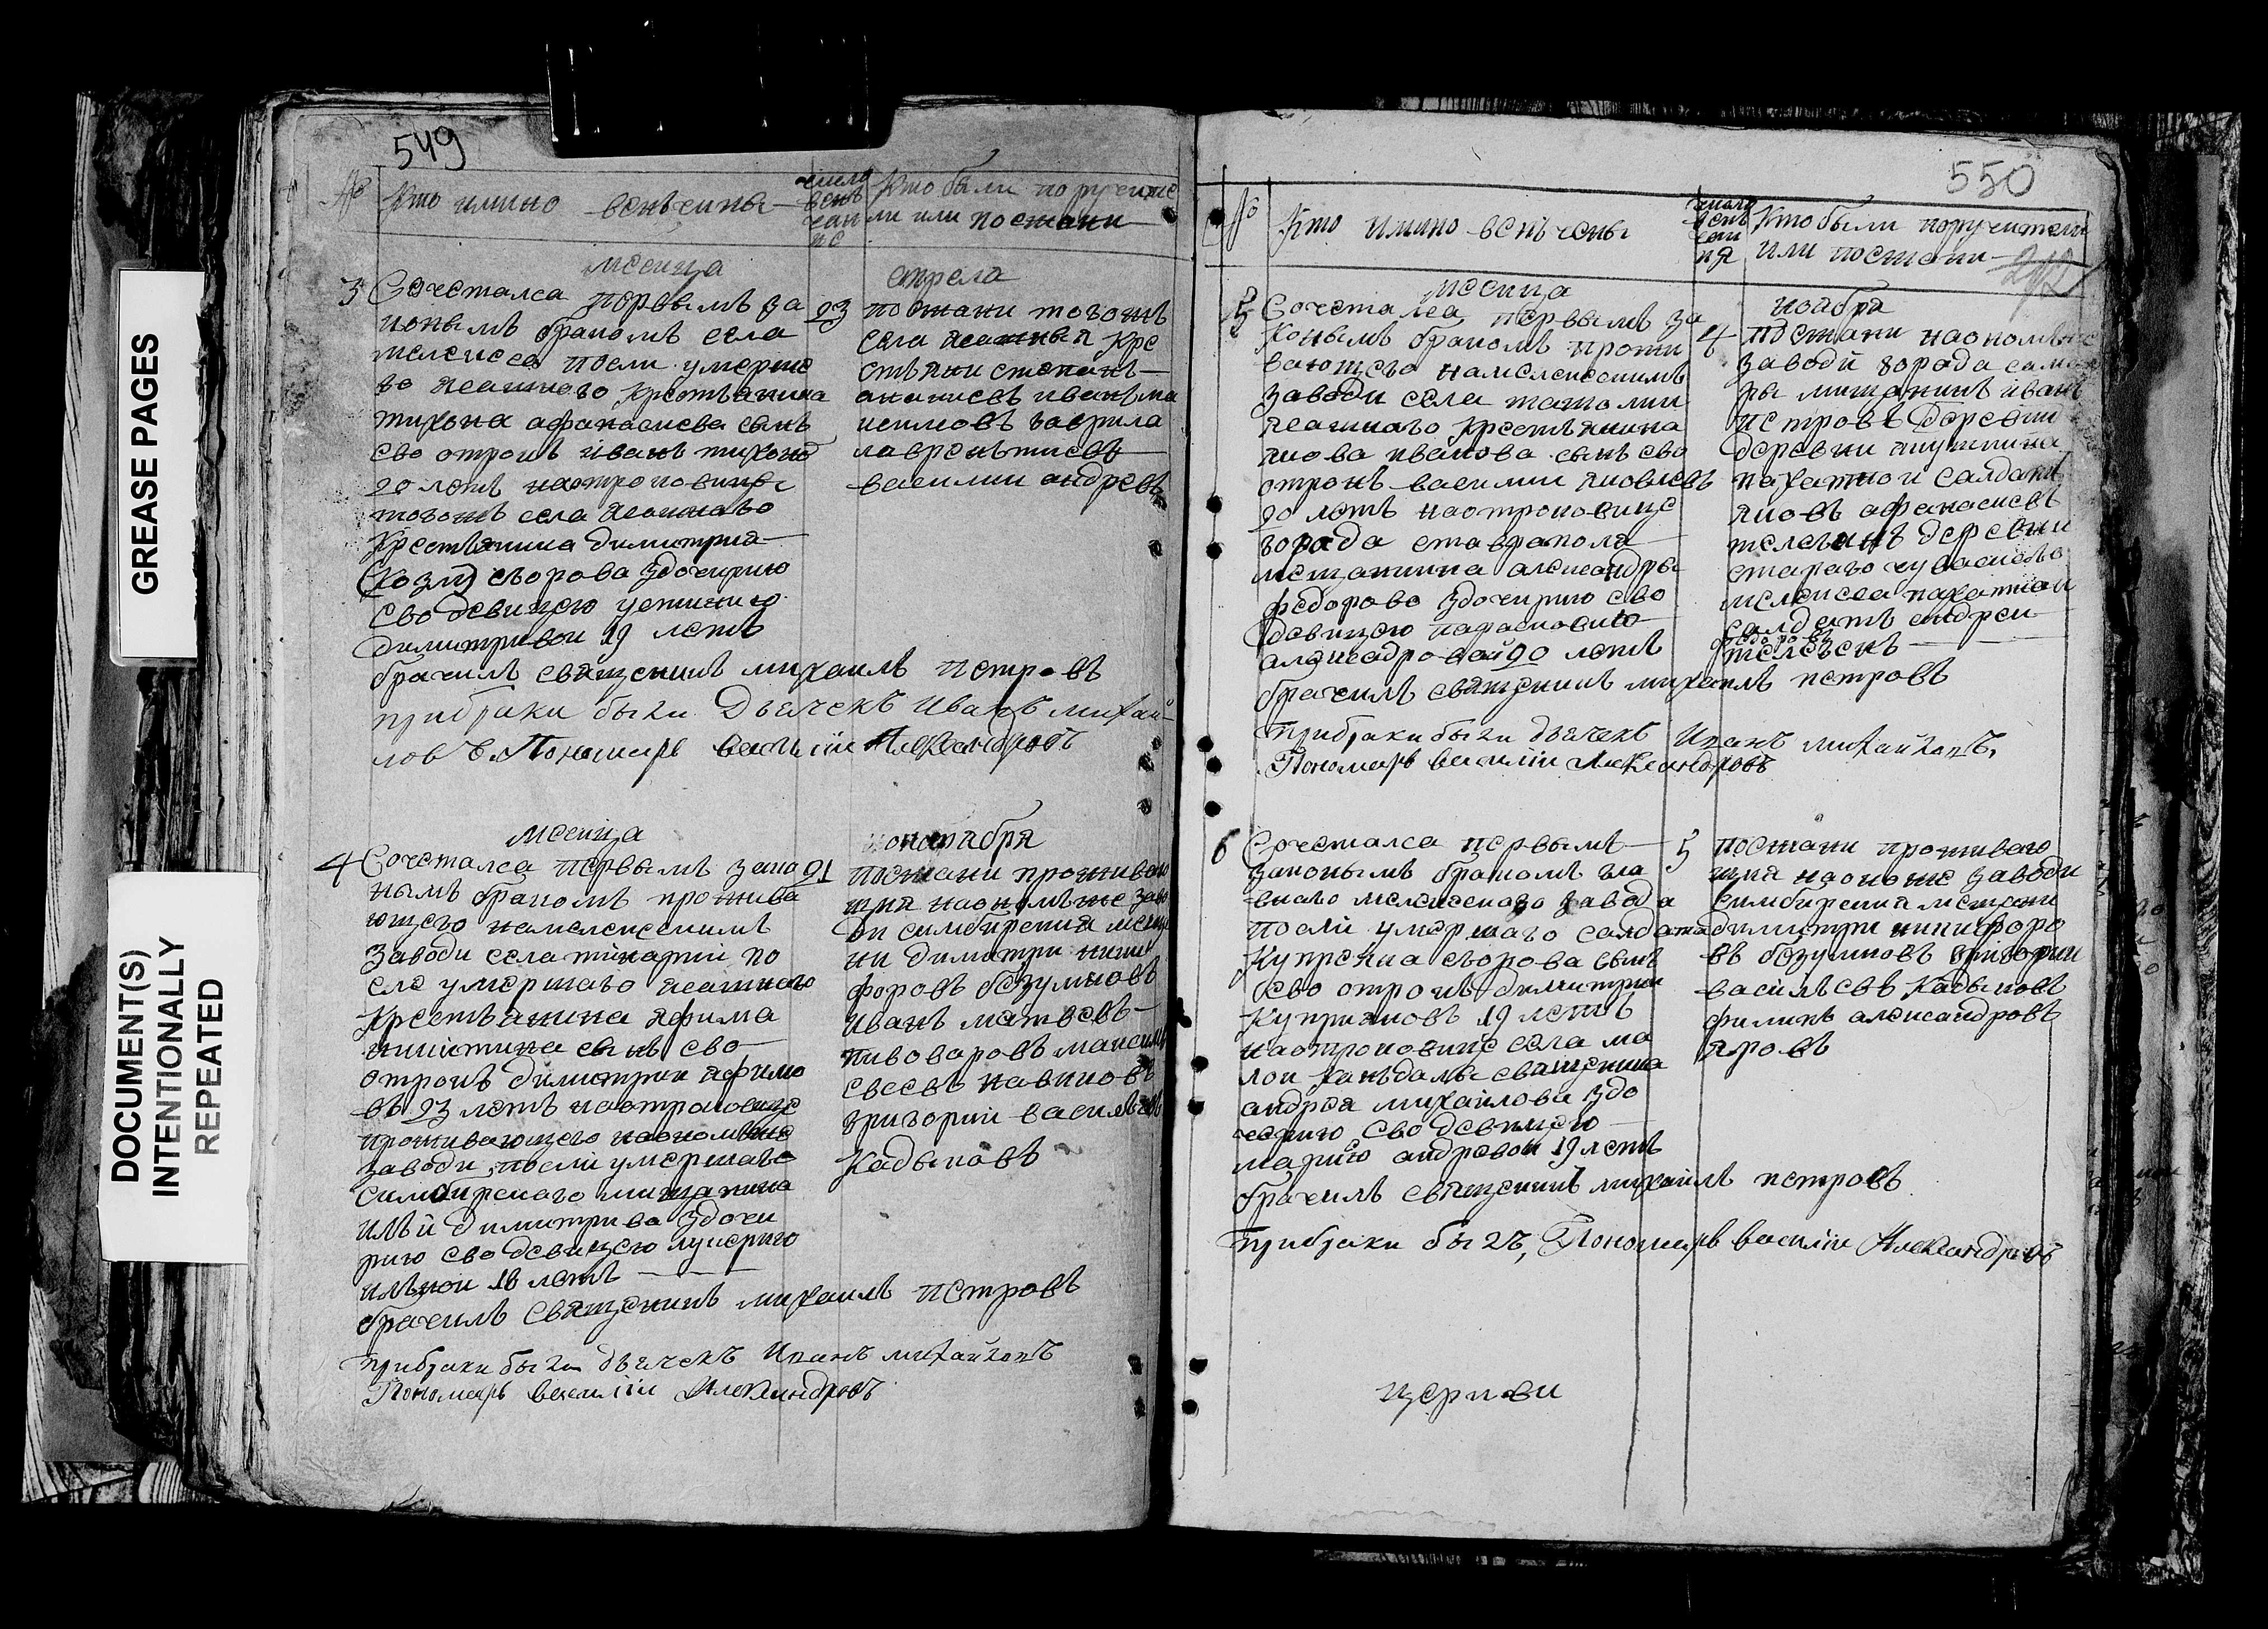 GREASE PAGES
DOCUMENT(S)
INTENTIONALLY
REPEATED
549
№
Кто имино венъчины
число
венъ
чан
не
Кто были поручите
ли или поежани
месица
апрела
3
Сочеталса первымъ за
коннымъ бракомъ села
мелекеса после умерше
го ясашного крестьянина
тихона афанасиева сынъ
ево отрокъ иванъ тихоно
20 летъ наотроковице
тогожъ села ясашного
крестьянина димитрия
(Козм) егорова здочирию
ево девицею устинию
димитривои 19 летъ
23
поежани тогожъ
села ясашныя кре
стьяни степанъ
ананиевъ иванъ ма
симовъ гаврила
лаврентиевъ
василии андревъ
брачилъ священникъ михаилъ петровъ
прибраки были дьячекъ Иванъ михаи
ловъ. Пономарь василии Александровъ
месица
октября
4
Сочеталса первымъ зако
нымъ бракомъ прожива
ющего намелекескимъ
заводи села
сле умершаго ясашного
крестьянина яфима
никитина сынъ ево
отрокъ димитрии яфимо
въ 23 летъ наотроковице
проживающего наономъже
заводи, после умершаго
симбирскаго мищанина
ильи димитрива здочи
рию ево девицею лукерию
ильнои 18 летъ
21
поежани проживаю
щия наономъже заво
ди симбирския меща
ни димитри ники
форовъ безумновъ
иванъ матвеевъ
пивоваровъ максим
евсевъ навиковъ
григории василевъ
Кадыковъ
брачилъ священикъ михаилъ петровъ
прибраки были дьячекъ Иванъ михаиловъ
Пономарь василии Александровъ
550
№
Кто имино венъчены
число
венъ
чан
ия
Кто были поручители
или поежани
месица
ноября
5
Сочеталса первымъ за
конымъ бракомъ прожи
вающего намелекескимъ
заводи села
ясашного крестьянина
якова иванова сынъ ево
отрокъ василии яковлевъ
20 летъ наотроковице
города ставрапола
мещанина александры
федорова здочирию ево
девицею параскевию
алексадровои 20 летъ
4
поежани наономъже
заводи города сама
ры мищанинъ иванъ
петровъ
деревни
пахатнои салдатъ
яковъ афанасиевъ
телегинъ деревни
стараго чувасково
мелекеса пахатнаи
салдатъ андреи
федоровъ
телегенъ
брачилъ священникъ михаилъ петровъ
прибраки были дьячекъ Иванъ михаиловъ,
Пономарь василии Александровъ
6
Сочеталса первымъ
законымъ бракомъ гла
внаго мелекескаго завода
после умершаго салдата
куприяна егорова сынъ
ево отрокъ димитрии
куприяновъ 19 летъ
наотроковице села ма
лои кандалы священика
андрея михаилова здо
чирию ево девицею
мариею андревои 19 летъ
5
поежани проживаю
щия наономже заводи
симбирския мещани
димитри никифоро
въ безумновъ григории
василевъ Кадыковъ
филипъ александровъ
яровъ
брачилъ священикъ михаилъ петровъ
прибраки былъ, Пономарь василии Александровъ
церкви